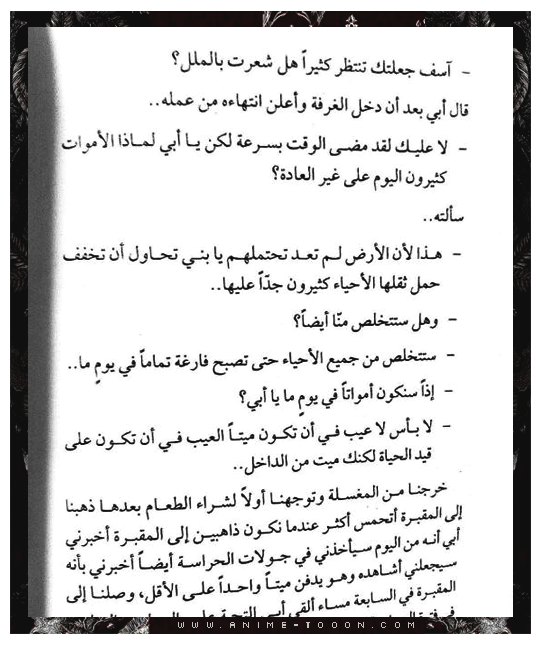 - آسف جعلتك تنتظر كثيراً هل شعرت بالملل؟
قال أبي بعد أن دخل الغرفة وأعلن انتهاءه من عمله..
- لا عليك لقد مضى الوقت بسرعة لكن يا أبي لماذا الأموات
كثيرون اليوم على غير العادة؟
سألته..
- هذا لأن الأرض لم تعد تحتملهم يا بني تحاول أن تخفف
حمل ثقلها الأحياء كثيرون جدّاً عليها..
- وهل ستتخلص منّا أيضاً؟
- ستتخلص من جميع الأحياء حتى تصبح فارغة تماماً في يومٍ ما..
- إذاً سنكون أمواتاً في يومٍ ما يا أبي؟
- لا بأس لا عيب في أن تكون ميتاً العيب في أن تكون على
قيد الحياة لكنك ميت من الداخل..
خرجنا من المغسلة وتوجهنا أولاً لشراء الطعام بعدها ذهبنا
إلى المقبرة أتحمس أكثر عندما نكون ذاهبين إلى المقبرة أخبرني
أبي أنه من اليوم سيأخذني في جولات الحراسة أيضاً أخبرني بأنه
سيجعلني أشاهده وهو يدفن ميتاً واحداً على الأقل، وصلنا إلى
المقبرة في السابعة مساء ألقى أبي التحية على
WWW.ANIME-TOOON.COM